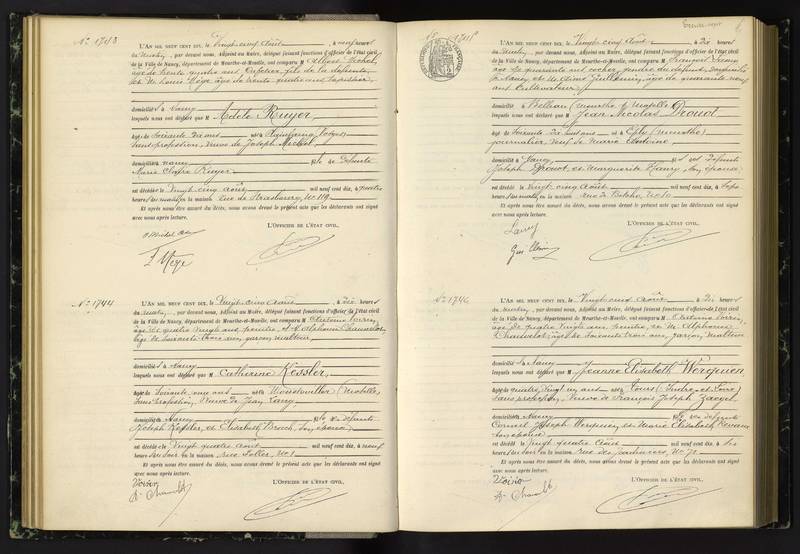 N° 1743
L'AN MIL NEUF CENT DIX, le Vingt cinq Août, à neuf heures
du matin, par devant nous, Adjoint au Maire, délégué faisant fonctions d'officier de l'état civil
de la Ville de Nancy, département de Meurthe-et-Moselle, ont comparu M Albert Michel,
âgé de trente quatre ans, fils de la défunte,
et M. Louis Hege âgé de trente quatre ans
domiciliés à Nancy
lesquels nous ont déclaré que M Adèle Ruyer
âgée de soixante dix ans née à (Vosges)
sans profession, Veuve de Joseph Michel
domiciliée à Nancy fille de défunte
Marie Ruyer
est décédée le Vingt cinq Août mil neuf cent dix, à quatre
heures du matin, en la maison rue de Strasbourg, No 119
Et après nous être assuré du décès, nous avons dressé le présent acte que les déclarants ont signé
avec nous après lecture.
L'OFFICIER DE L'ÉTAT CIVIL,
N° 1744
L'AN MIL NEUF CENT DIX, le Vingt cinq Août, à dix heures
du matin, par devant nous, Adjoint au Maire, délégué faisant fonctions d'officier de l'état civil
de la Ville de Nancy, département de Meurthe-et-Moselle, ont comparu M Antoine Voirin,
âgé de quatre vingts ans, peintre, et M. Alphonse Chauvelot,
âgé de soixante trois ans, garçon
domiciliés à Nancy
lesquels nous ont déclaré que M Catherine Kessler,
âgée de soixante onze ans née à (Moselle),
sans profession, Veuve de Jean Lang
domiciliée à Nancy fille de défunts
Joseph Kessler, et Elisabeth son épouse
est décédée le Vingt quatre Août mil neuf cent dix, à neuf
heures du soir en la maison rue Foller, No 1
Et après nous être assuré du décès, nous avons dressé le présent acte que les déclarants ont signé
avec nous après lecture.
Voirin
L'OFFICIER DE L'ÉTAT CIVIL,
N° 1745
L'AN MIL NEUF CENT DIX, le Vingt cinq Août, à dix heures
du matin, par devant nous, Adjoint au Maire, délégué faisant fonctions d'officier de l'état civil
de la Ville de Nancy, département de Meurthe-et-Moselle, ont comparu M François
âgé de quarante ans cocher, gendre du défunt, domicilié
à Nancy et M. Guillemin, âgé de quarante neuf
ans Cultivateur
domicilié à Belleau (Meurthe & Moselle)
lesquels nous ont déclaré que M Jean Nicolas Drouot
âgé de soixante dix huit ans né à (Meurthe)
journalier, Veuf de Marie Antoine
domicilié à Nancy, fils des défunts
Joseph Drouot, et Marguerite Haury, son épouse
est décédé le Vingt cinq Août mil neuf cent dix, à sept
heures du matin, en la maison rue de No 10
Et après nous être assuré du décès, nous avons dressé le présent acte que les déclarants ont signé
avec nous après lecture.
L'OFFICIER DE L'ÉTAT CIVIL,
N° 1746
L'AN MIL NEUF CENT DIX, le Vingt cinq Août, à dix heures
du matin, par devant nous, Adjoint au Maire, délégué faisant fonctions d'officier de l'état civil
de la Ville de Nancy, département de Meurthe-et-Moselle, ont comparu M Antoine Voirin,
âgé de quatre vingts ans, peintre, et M. Alphonse
Chauvelot, âgé de soixante trois ans, garçon
domiciliés à Nancy
lesquels nous ont déclaré que M Jeanne Elisabeth Werquein,
âgée de quatre vingt un ans née à Tours (Indre et Loire)
sans profession, Veuve de François Joseph Zaegel
domiciliée à Nancy fille de défunts
Corneil Joseph Werquein, et Marie Elisabeth
son épouse
est décédée le Vingt quatre Août mil neuf cent dix, à six
heures du soir, en la maison rue des No 72
Et après nous être assuré du décès, nous avons dressé le présent acte que les déclarants ont signé
avec nous après lecture.
Voirin
L'OFFICIER DE L'ÉTAT CIVIL,